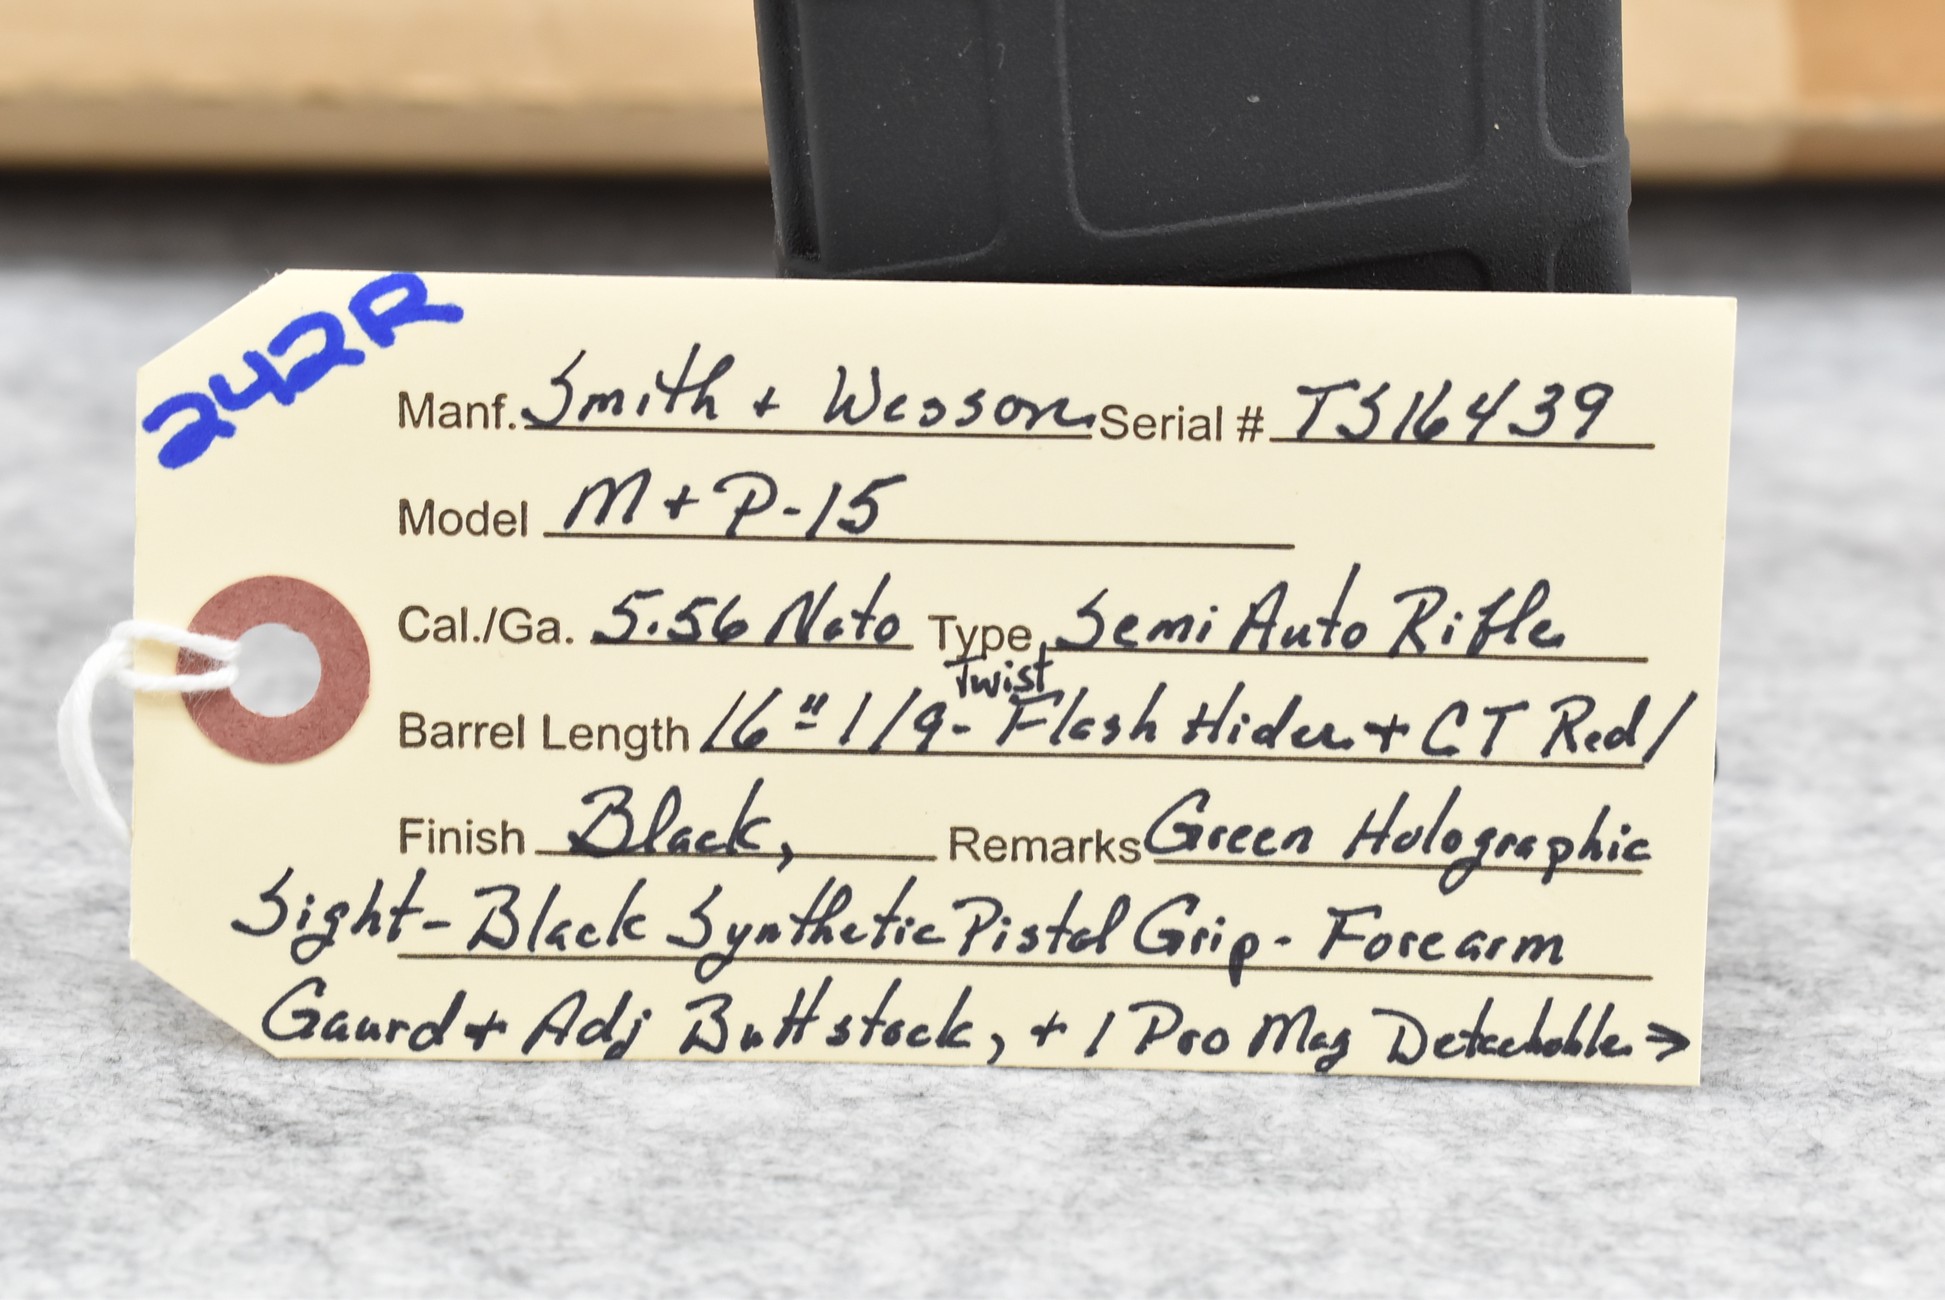 242R
Manf. Smith + Wesson Serial # TS16439
Model M+P-15
Cal./Ga. 5.56 Nato Type Semi Auto Rifle
Twist
Barrel Length 16" 1/9- Flash Hider + CT Red/
Finish Black, Remarks Green Holographic
Sight-Black Synthetic Pistol Grip- Forearm
Gaurd + Adj Buttstock, + 1 Pro Mag Detachable →